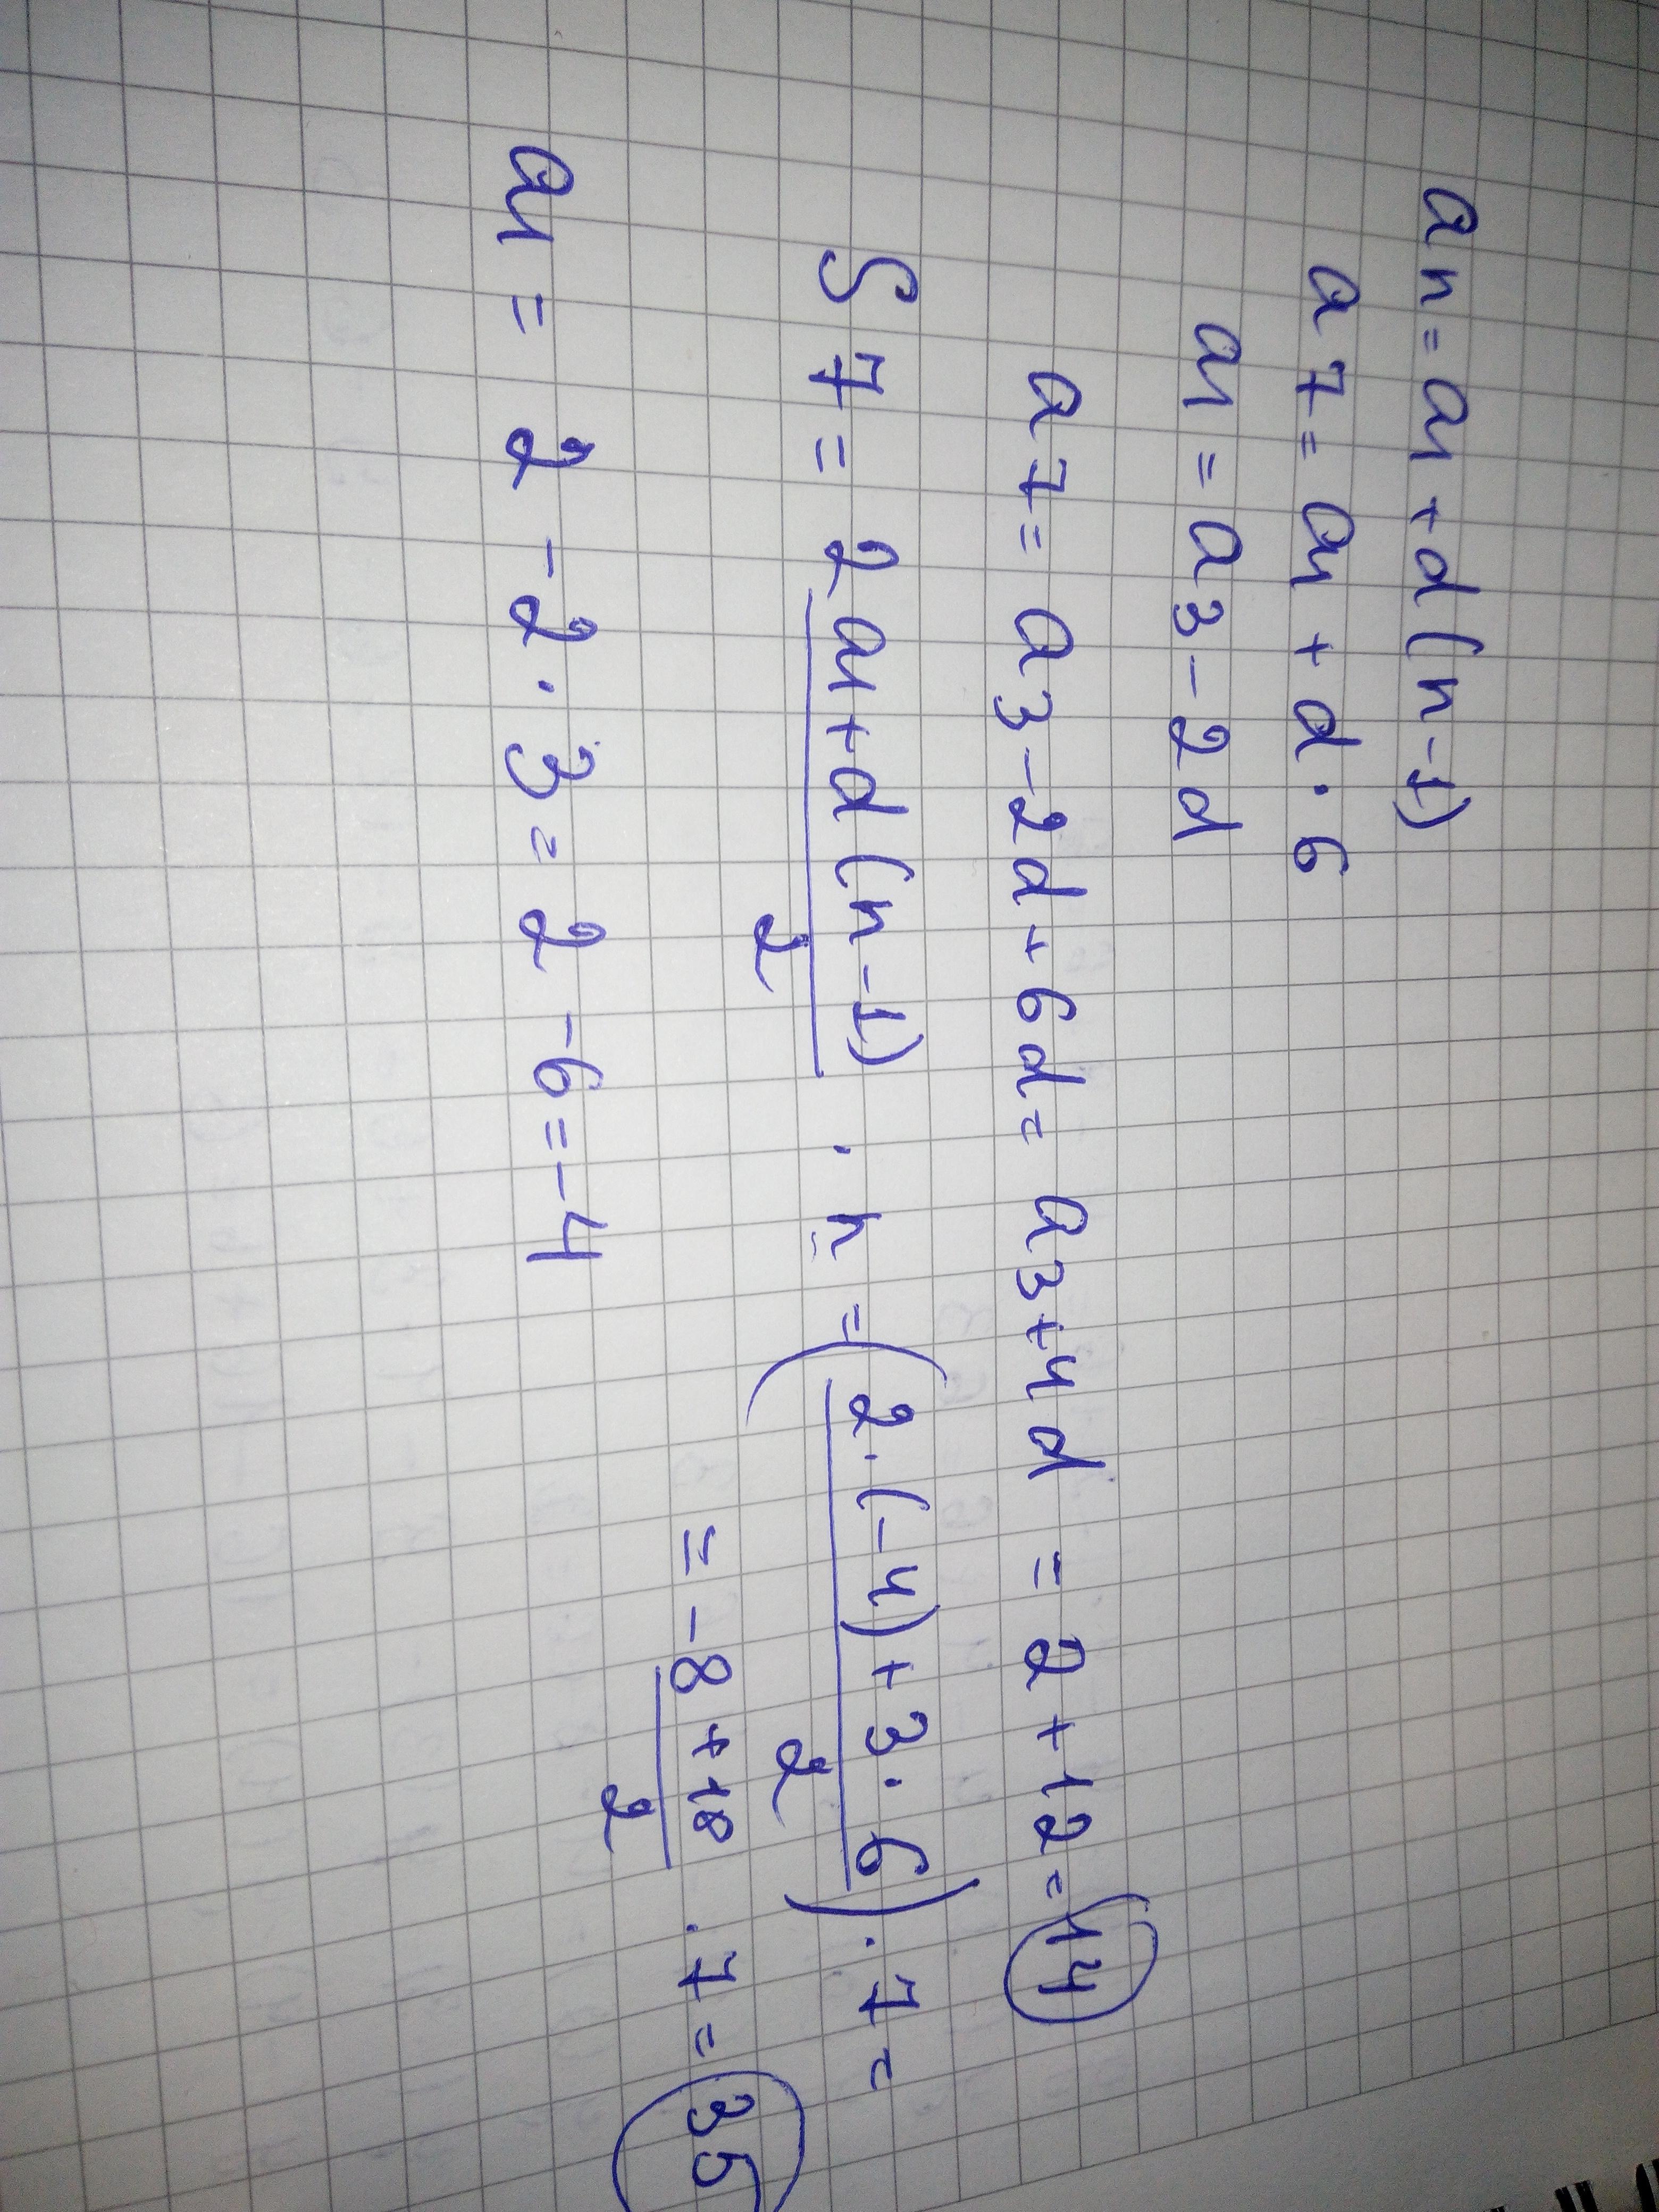 an = a1 + d(n-1)
a7 = a1 + d · 6
a1 = a3 - 2d
a7 = a3 - 2d + 6d = a3 + 4d = 2 + 12 = 14
S7 = (2a1 + d(n-1))/2 · n = ((2·(-4) + 3·6)/2) · 7 =
= (-8 + 18)/2 · 7 = 35
a1 = 2 - 2 · 3 = 2 - 6 = -4